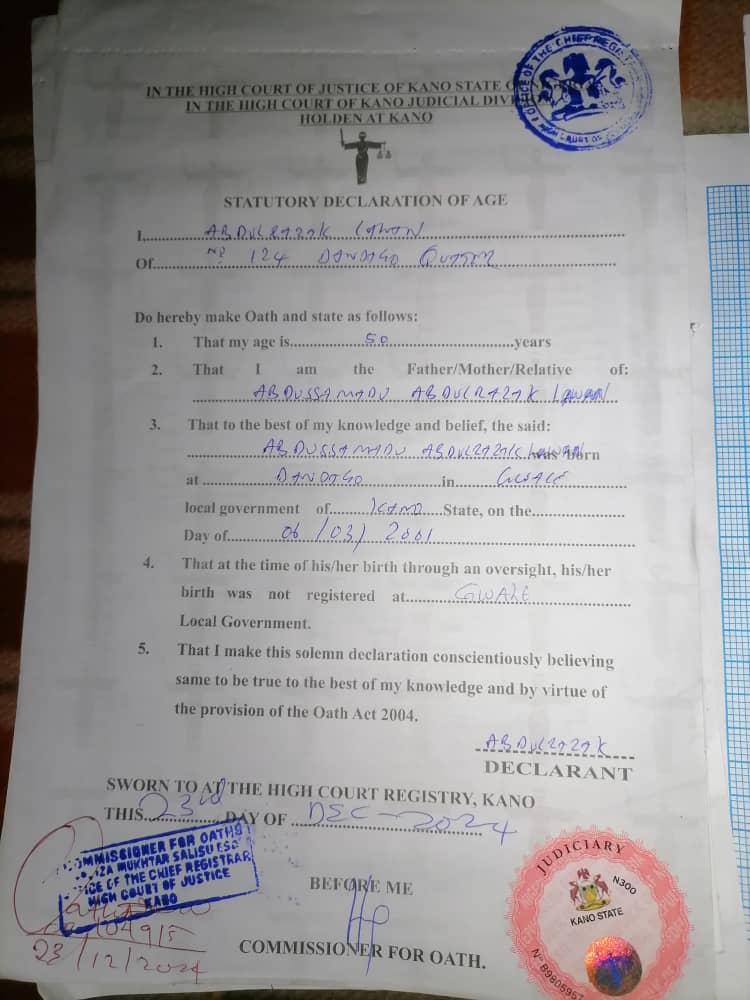 OFFICE OF THE CHIEF REGISTRAR
HIGH COURT OF
IN THE HIGH COURT OF JUSTICE OF KANO STATE
IN THE HIGH COURT OF KANO JUDICIAL DIVISION
HOLDEN AT KANO
STATUTORY DECLARATION OF AGE
I,..........ABDULRAZAK LAWAN..........
Of..........No 124 DANDAGO..........
Do hereby make Oath and state as follows:
1. That my age is..........50..........years
2. That I am the Father/Mother/Relative of:
ABDUSSAMADU ABDULRAZAK LAWAN
3. That to the best of my knowledge and belief, the said:
ABDUSSAMADU ABDULRAZAK LAWAN was born
at..........DANDAGO..........in..........GWALE..........
local government of..........KANO..........State, on the..........
Day of..........06/03/2001..........
4. That at the time of his/her birth through an oversight, his/her
birth was not registered at..........GWALE..........
Local Government.
5. That I make this solemn declaration conscientiously believing
same to be true to the best of my knowledge and by virtue of
the provision of the Oath Act 2004.
ABDULRAZAK
DECLARANT
SWORN TO AT THE HIGH COURT REGISTRY, KANO
THIS..........23rd..........DAY OF..........DEC-2024
COMMISSIONER FOR OATHS
MUKHTAR SALISU ESQ
OFFICE OF THE CHIEF REGISTRAR
HIGH COURT OF JUSTICE
KANO
23/12/2024
BEFORE ME
COMMISSIONER FOR OATH.
JUDICIARY
N300
KANO STATE
No B9805957